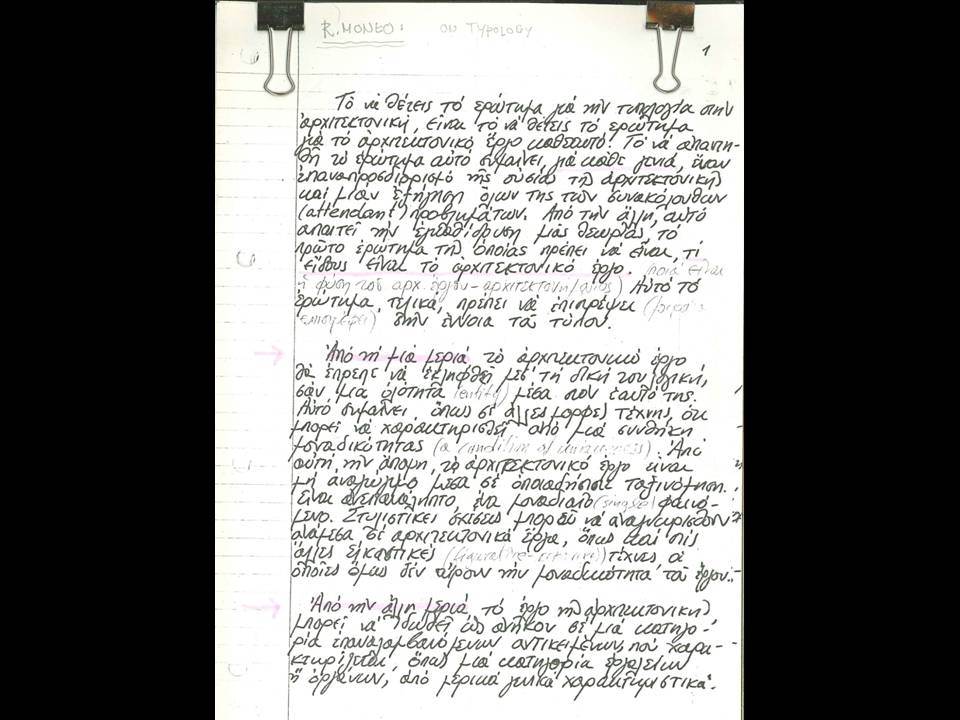 R. MONEO: ON TYPOLOGY
1
Τὸ νὰ θέτεις τό ἐρώτημα γιά τὴν τυπολογία στὴν
ἀρχιτεκτονική, εἶναι τὸ νὰ θέτεις τὸ ἐρώτημα
γιὰ τὸ ἀρχιτεκτονικό ἔργο καθεαυτό. Τὸ νά ἀπαντη-
θῆ τὸ ἐρώτημα αὐτό σημαίνει, γιά κάθε γενιά, ἕναν
ἐπαναπροσδιορισμό τῆς οὐσίας τῆς ἀρχιτεκτονικῆς
καί μίαν ἐξήγηση ὅλων της τῶν συνακόλουθων
(attendant) προβλημάτων. Ἀπό τὴν ἄλλη, αὐτό
ἀπαιτεῖ τὴν ἐγκαθίδρυση μιᾶς θεωρίας, τό
πρῶτο ἐρώτημα τῆς ὁποίας πρέπει νά εἶναι, τί
εἴδους εἶναι τὸ ἀρχιτεκτονικό ἔργο. (ποιά εἶναι
ἡ φύση τοῦ ἀρχ. ἔργου - Αὐτό τὸ
ἐρώτημα, τελικά, πρέπει νὰ ἐπιτρέψει
στὴν ἔννοια τοῦ τύπου.
Ἀπό τη μιά μεριά τὸ ἀρχιτεκτονικό ἔργο
θὰ ἔπρεπε νὰ ἐκληφθεῖ μὲς τή δική του λογική,
σὰν μιά ὁλότητα (entity) μέσα στόν ἑαυτό της.
Αὐτό σημαίνει, ὅπως σὲ ἄλλες μορφές τέχνης, ὅτι
μπορεῖ νὰ χαρακτηρισθεῖ ἀπό μιά συνθήκη
μοναδικότητας (a condition of uniqueness). Ἀπό
αὐτή τὴν ἄποψη, τὸ ἀρχιτεκτονικό ἔργο εἶναι
μή ἀναγώγιμο μέσα σέ ὁποιαδήποτε ταξινόμηση.
Εἶναι ἀνεπανάληπτο, ἕνα μοναδικό (single) φαινό-
μενο. Στυλιστικές σχέσεις μποροῦν νά ἀναγνωρισθοῦν
ἀνάμεσα σέ ἀρχιτεκτονικά ἔργα, ὅπως καί στίς
ἄλλες εἰκαστικές τέχνες α
ὁποῖες ὅμως δέν αἴρουν τὴν μοναδικότητα τοῦ ἔργου.
Ἀπό τὴν ἄλλη μεριά τό ἔργο τῆς ἀρχιτεκτονικῆς
μπορεῖ νά ἰδωθεῖ ὡς ἀνῆκον σὲ μιά κατηγο-
ρία ἐπαναλαμβανόμενων ἀντικειμένων, πού χαρα-
κτηρίζεται, ὅπως μιά κατηγορία ἐργαλείων
ἤ ὀργάνων, ἀπό μερικά γενικά χαρακτηριστικά.